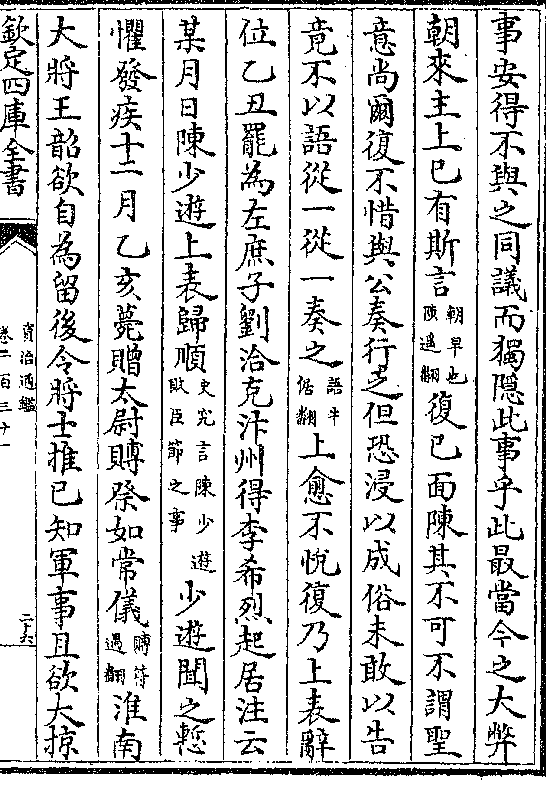 事安得不與之同議而獨隱此事乎此最當今之大弊
朝來主上已有斯言朝早也陟遥翻復已面陳其不可不謂聖
意尚爾復不惜與公奏行之但恐浸以成俗未敢以告
竟不以語從一從一奏之語牛倨翻上愈不悅復乃上表辭
位乙丑罷為左庶子劉洽克汴州得李希烈起居注云
某月日陳少遊上表歸順史究言陳少遊敗臣節之事少遊聞之慙
懼發疾十二月乙亥薨贈太尉賻祭如常儀賻符遇翻淮南
大將王韶欲自為留後令將士推己知軍事且欲大掠
欽定四庫全書
資治通鑑
卷二百三十一
二十六